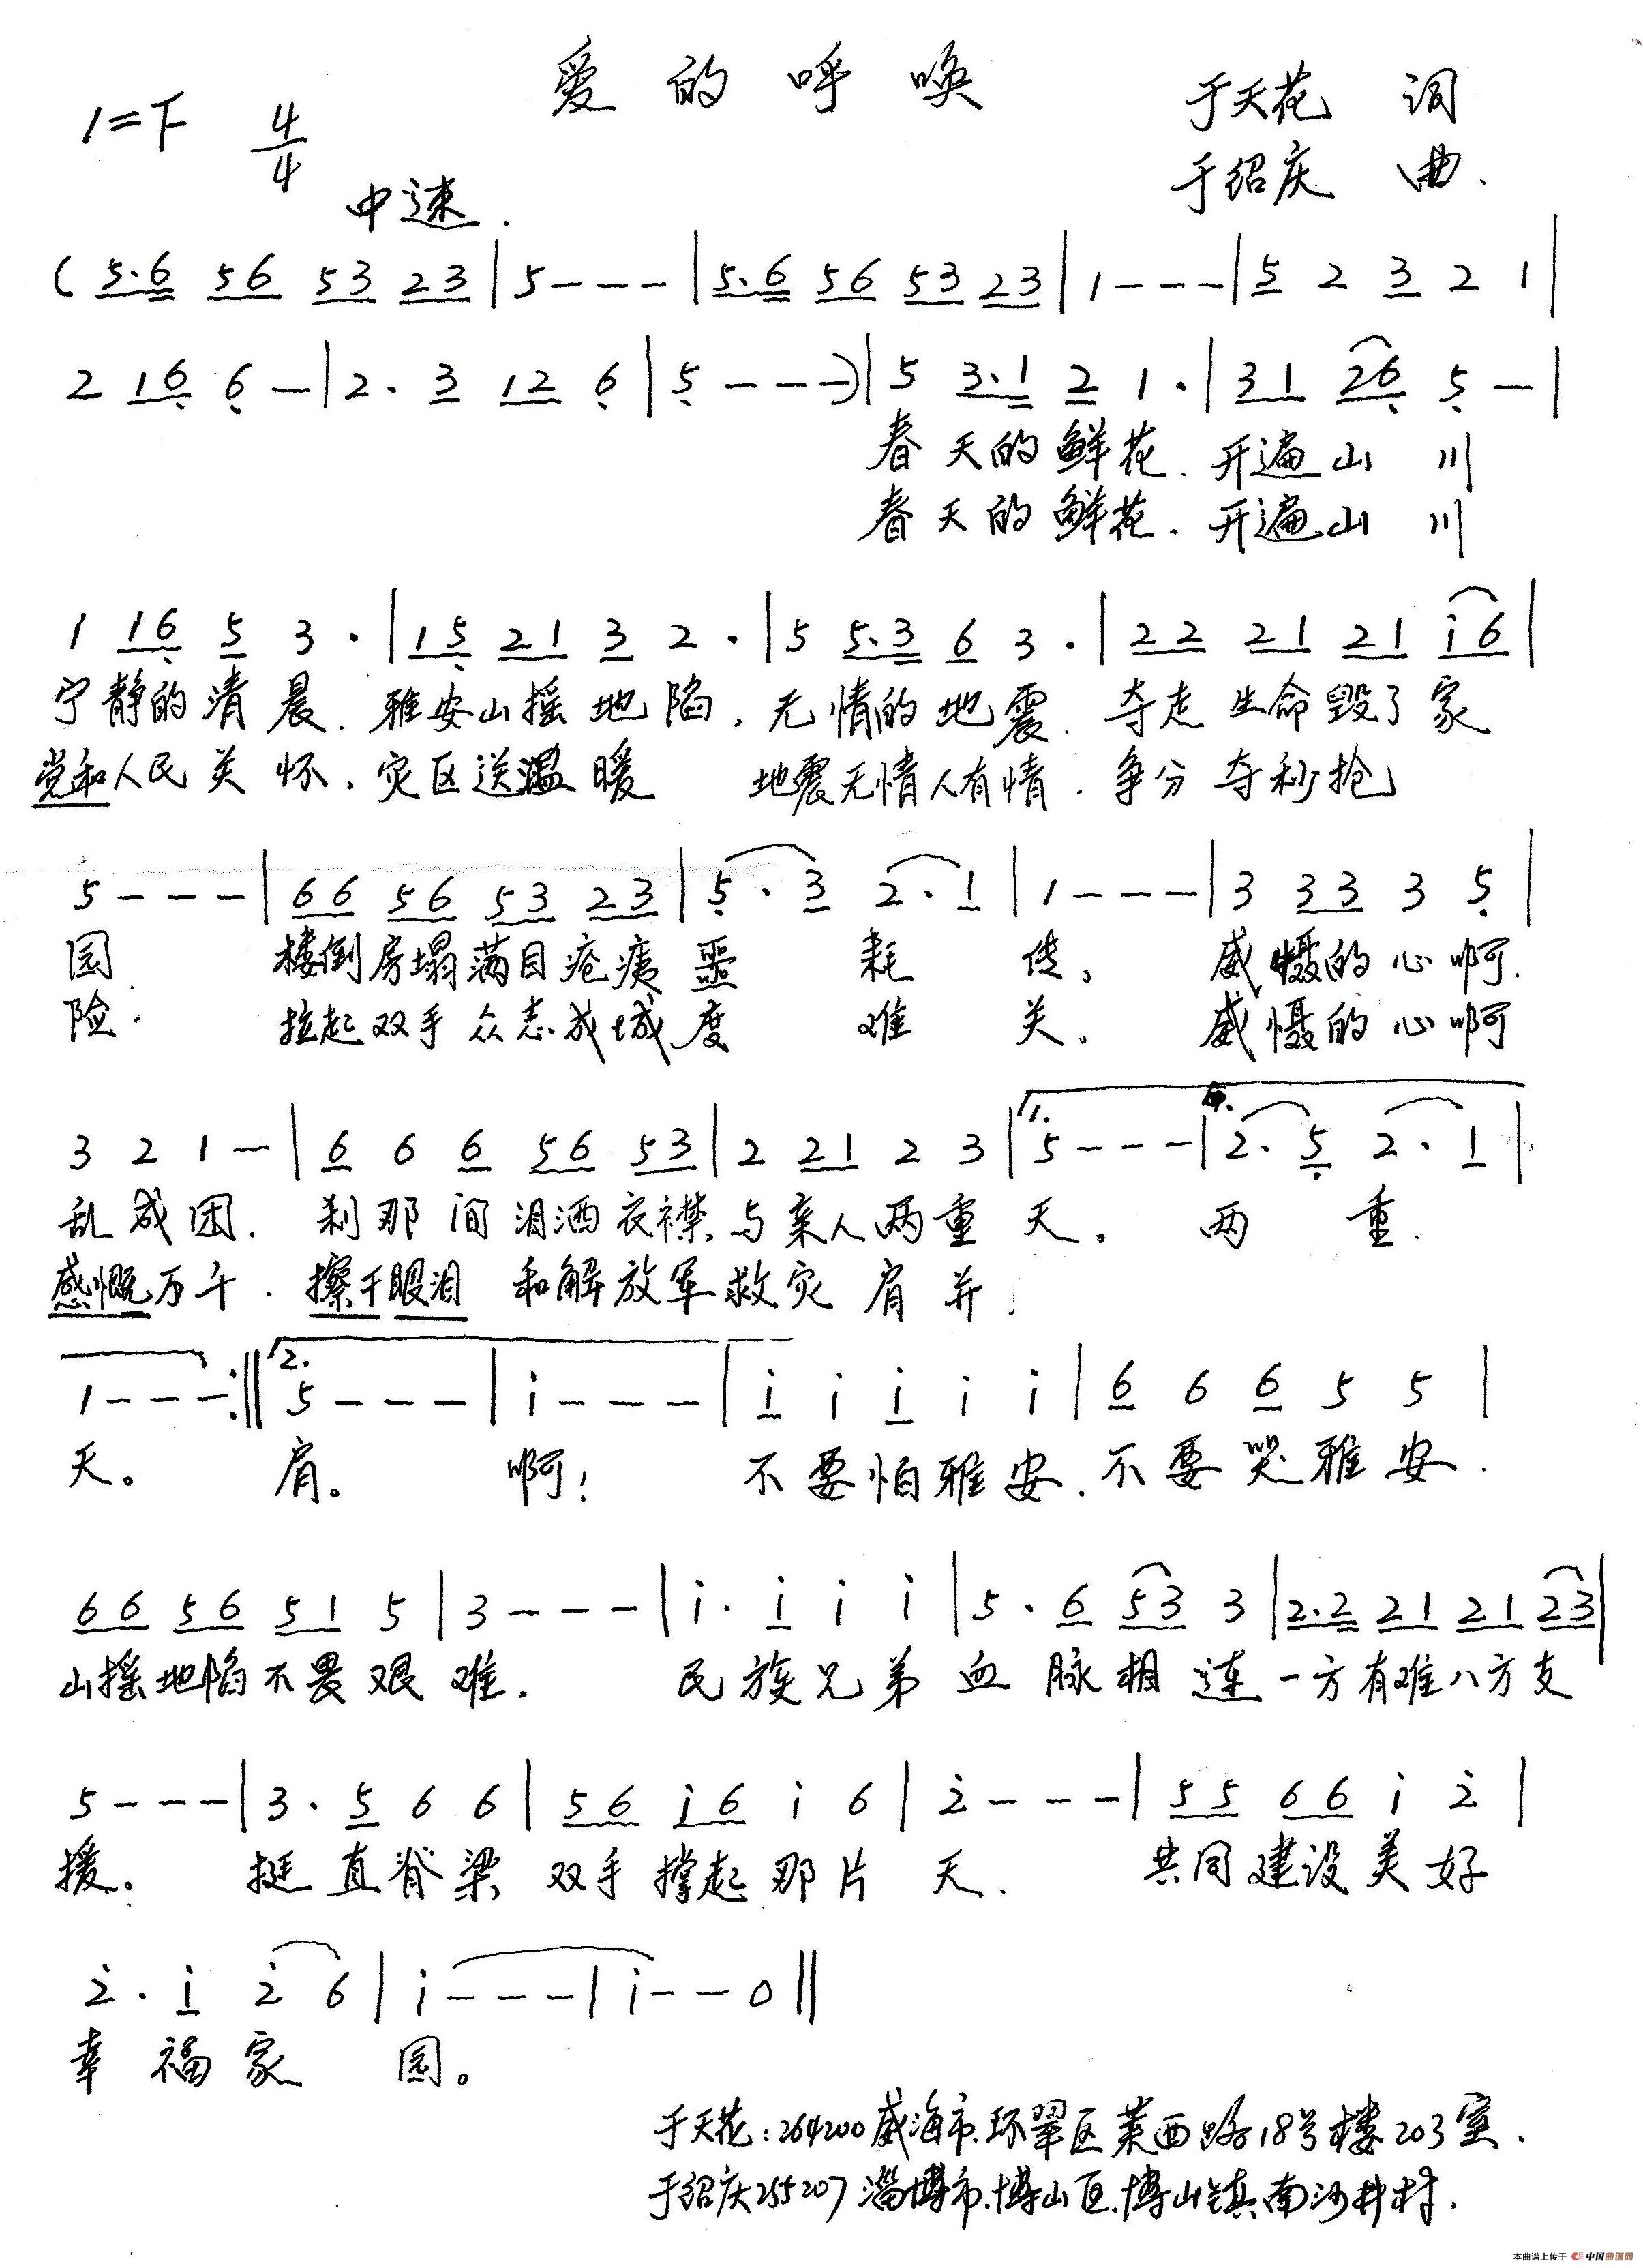 爱的呼唤
1=F 4/4
中速.
于天花 词
于绍庆 曲.
( 5·6 56 53 23 | 5 - - - | 5·6 56 53 23 | 1 - - - | 5 2 3 2 1 |
2 16 6 - | 2· 3 12 6 | 5 - - - ) | 5 3·1 2 1· | 31 26 5 - |
春天的鲜花. 开遍山 川
春天的鲜花. 开遍山 川
1 16 5 3· | 15 21 3 2· | 5 5·3 6 3· | 22 21 21 i6 |
宁静的清晨. 雅安山摇地陷. 无情的地震. 夺走生命毁了家
党和人民关怀. 灾区送温暖 地震无情人有情. 争分夺秒抢
5 - - - | 66 56 53 23 | 5· 3 2· 1 | 1 - - - | 3 33 3 5 |
园. 楼倒房塌满目疮痍噩 耗 传。 威慑的心啊.
险. 拉起双手众志成城度 难 关。 威慑的心啊
3 2 1 - | 6 6 6 56 53 | 2 21 2 3 | 1. 5 - - - | 2· 5 2· 1 |
乱成团. 刹那间泪洒衣襟与亲人两重 天。 两 重.
感慨万千. 擦干眼泪 和解放军救灾肩并
1 - - - :‖ 2. 5 - - - | i - - - | i i i i i | 6 6 6 5 5 |
天。 肩。 啊! 不要怕雅安. 不要哭雅安.
66 56 51 5 | 3 - - - | i· i i i | 5· 6 53 3 | 2·2 21 21 23 |
山摇地陷不畏艰 难. 民族兄弟血脉相连一方有难八方支
5 - - - | 3· 5 6 6 | 56 i6 i 6 | 2 - - - | 55 66 i 2 |
援。 挺直脊梁 双手撑起那片 天. 共同建设美好
2· i 2 6 | i - - - | i - - 0 ‖
幸福家 园。
于天花:264200威海市.环翠区莱西路18号楼203室.
于绍庆255207淄博市.博山区.博山镇南沙井村.
本曲谱上传于 中国曲谱网